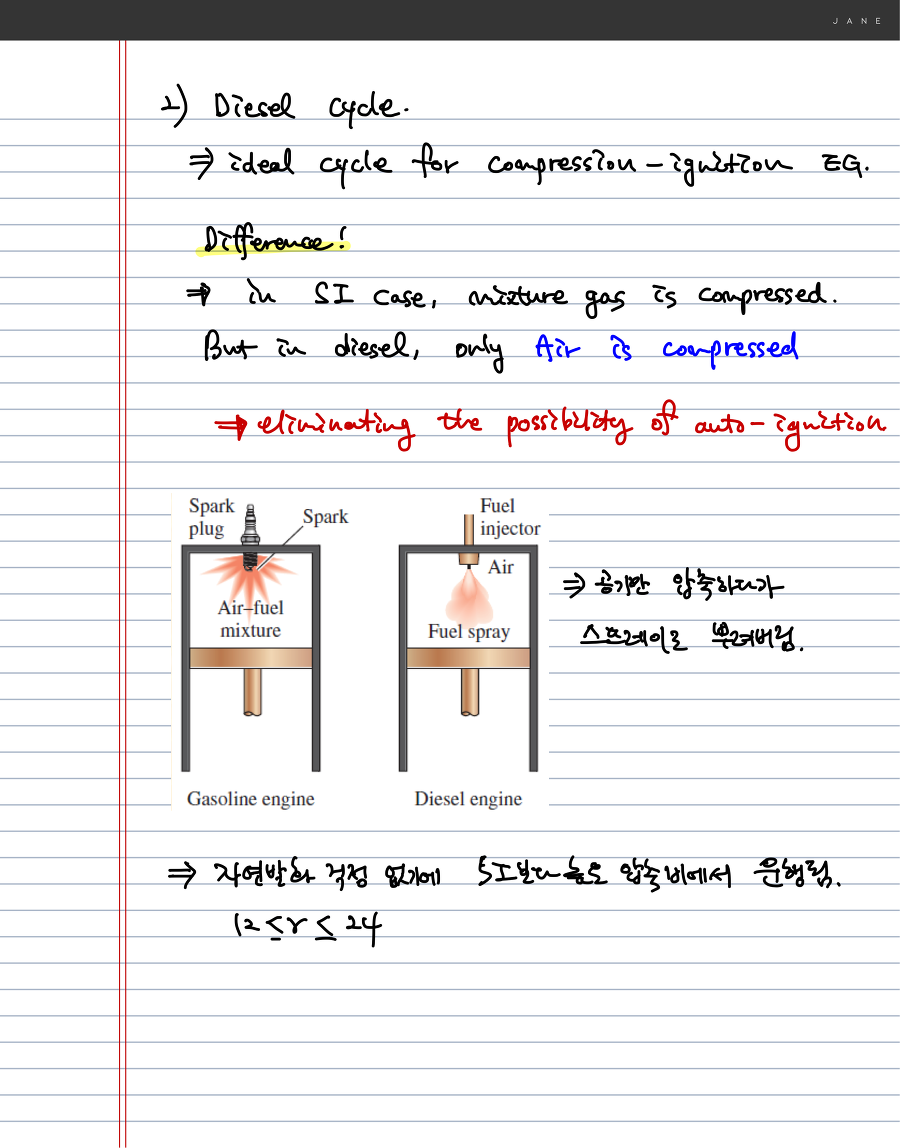 JANE
2) Diesel cycle.
⇒ ideal cycle for compression-ignition EG.
Difference!
⇒ in SI case, mixture gas is compressed.
But in diesel, only Air is compressed
⇒ eliminating the possibility of auto-ignition
Spark plug
Spark
Air–fuel mixture
Gasoline engine
Fuel injector
Air
Fuel spray
Diesel engine
⇒ 공기만 압축하다가
스프레이로 뿌려버림.
⇒ 자연발화 걱정 없기에 SI보다 높은 압축비에서 운행됨.
12 ≤ r ≤ 24